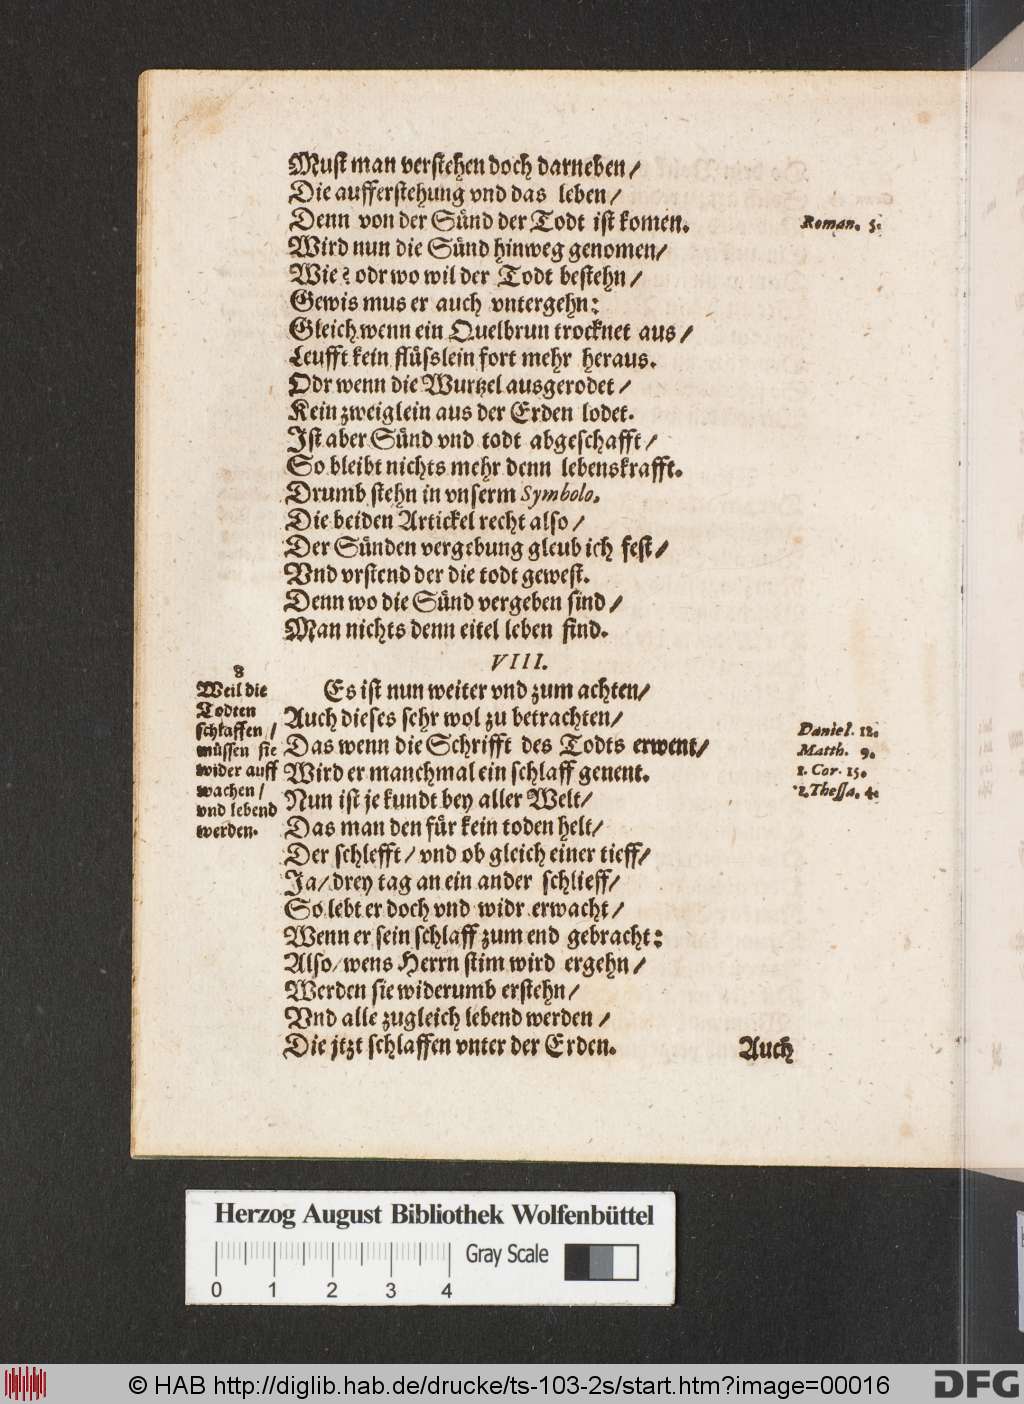 Must man verstehen doch darneben /
Die aufferstehung vnd das leben /
Denn von der Sünd der Todt ist komen.
Roman. 5.
Wird nun die Sünd hinweg genomen /
Wie? odr wo wil der Todt bestehn /
Gewis mus er auch vntergehn:
Gleich wenn ein Quelbrun trocknet aus /
Leufft kein flüsslein fort mehr heraus.
Odr wenn die Wurtzel ausgerodet /
Kein zweiglein aus der Erden lodet.
Ist aber Sünd vnd todt abgeschafft /
So bleibt nichts mehr denn lebenskrafft.
Drumb stehn in vnserm Symbolo.
Die beiden Artickel recht also /
Der Sünden vergebung gleub ich fest /
Vnd vrstend der die todt gewest.
Denn wo die Sünd vergeben sind /
Man nichts denn eitel leben find.
VIII.
8
Weil die
Todten
schlaffen /
müssen sie
wider auff
wachen /
vnd lebend
werden.
Es ist nun weiter vnd zum achten /
Auch dieses sehr wol zu betrachten /
Das wenn die Schrifft des Todts erwent /
Wird er manchmal ein schlaff genent.
Daniel. 12.
Matth. 9.
1. Cor. 15.
1. Thessa. 4.
Nun ist je kundt bey aller Welt /
Das man den für kein toden helt /
Der schlefft / vnd ob gleich einer tieff /
Ja / drey tag an ein ander schlieff /
So lebt er doch vnd widr erwacht /
Wenn er sein schlaff zum end gebracht:
Also / wens Herrn stim wird ergehn /
Werden sie widerumb erstehn /
Vnd alle zugleich lebend werden /
Die jtzt schlaffen vnter der Erden.
Auch
Herzog August Bibliothek Wolfenbüttel
Gray Scale
0 1 2 3 4
© HAB http://diglib.hab.de/drucke/ts-103-2s/start.htm?image=00016
DFG